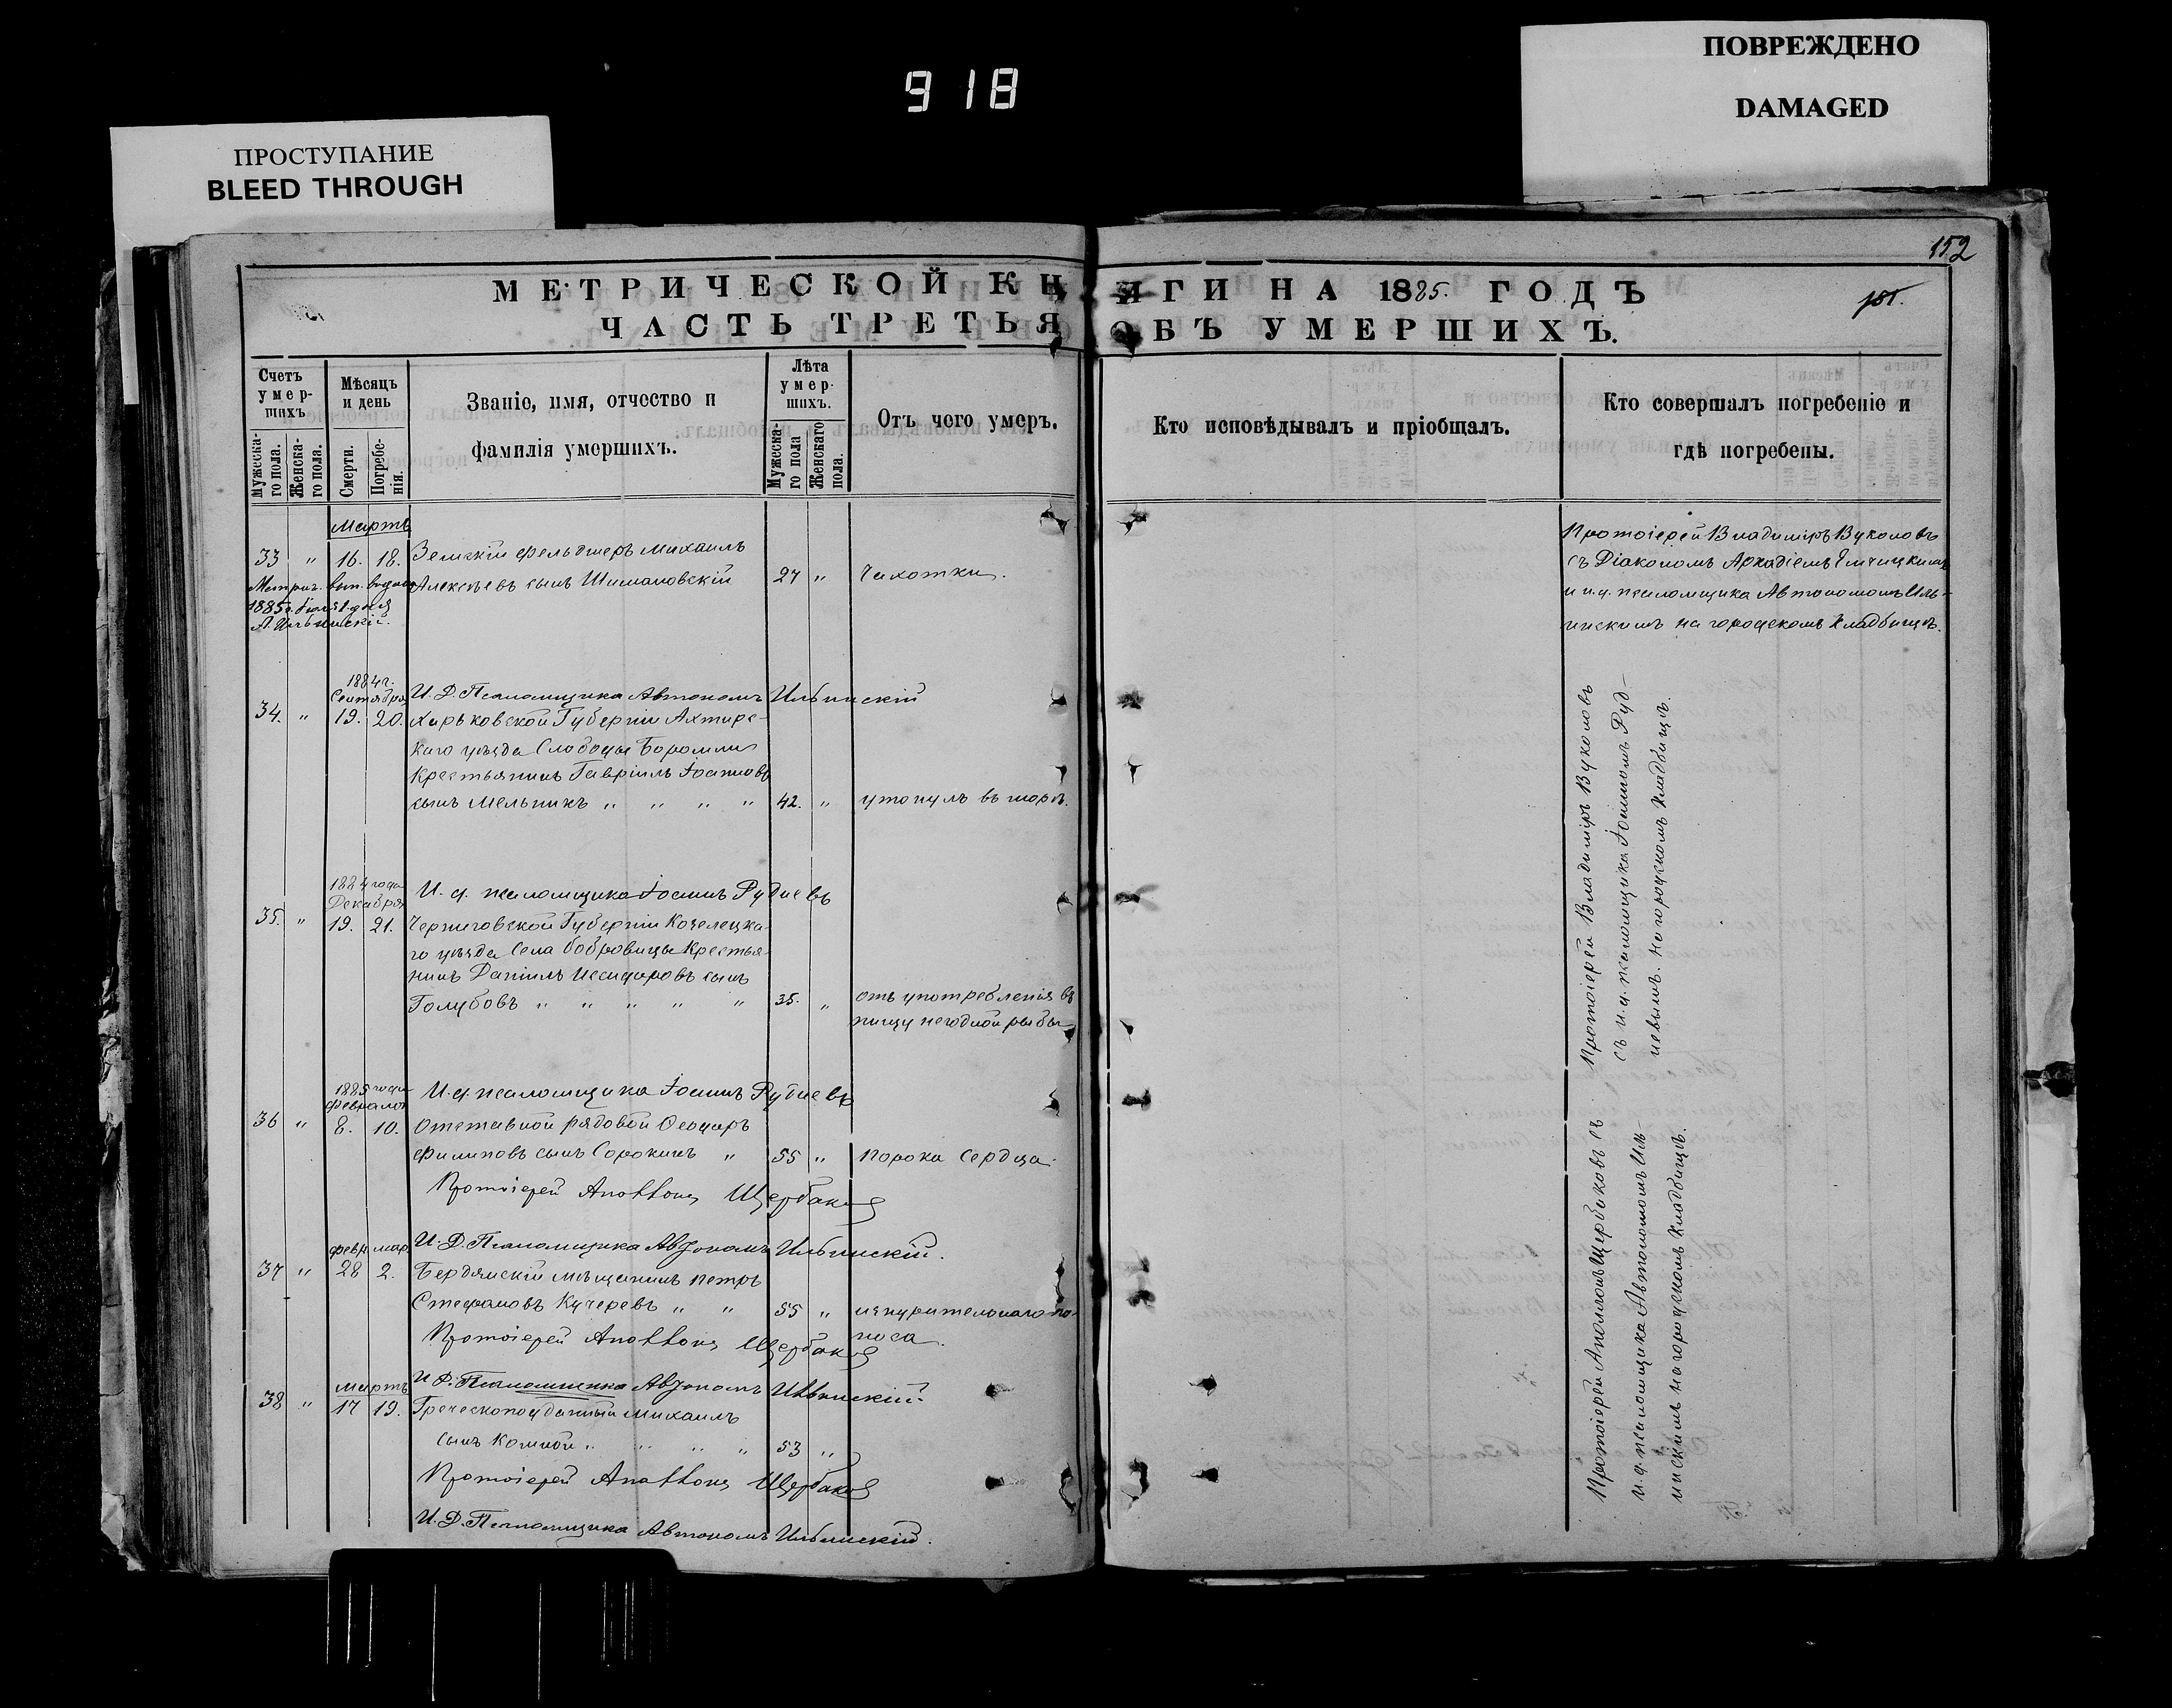 918
ПОВРЕЖДЕНО
DAMAGED
ПРОСТУПАНИЕ
BLEED THROUGH
152
МЕТРИЧЕСКОЙ КНИГИ НА 1885. ГОДЪ
ЧАСТЬ ТРЕТЬЯ ОБЪ УМЕРШИХЪ.
Счетъ умер-шихъ
Мужеска-го пола.
Женска-го пола.
Мѣсяцъ и день
Смерти.
Погребе-нія.
Званіе, имя, отчество и
фамилія умершихъ.
Лѣта умер-шихъ.
Мужеска-го пола
Женскаго пола.
Отъ чего умеръ.
Кто исповѣдывалъ и пріобщалъ.
Кто совершалъ погребеніе и
гдѣ погребены.
Мартъ
33 " 16. 18. Земскій фельдшеръ Михаилъ
Алексѣевъ сынъ Шимановскій 27 " Чахотки.
Метрич. вып. выдана
1885 г. Іюля 1. дня
А. Ильинскій.
Протоіерей Владиміръ Вуколовъ
съ Діакономъ Аркадіемъ
и и. д. псаломщика Автономомъ Иль-
инскимъ на городскомъ кладбищѣ.
И. Д. Псаломщика Автономъ Ильинскій
1884 г.
Сентября
34. " 19. 20. Харьковской Губерніи Ахтирс-
каго уѣзда Слободы Боромли
Крестьянинъ Гавріилъ Іоанновъ
сынъ Мельникъ " " " " 42. " утонулъ въ морѣ.
И. д. псаломщика Іоаннъ Рудневъ
1884 года
Декабря
35. " 19. 21. Черниговской Губерніи Козелецка-
го уѣзда Села Бобровицы Крестья-
нинъ Даніилъ Исидоровъ сынъ
Голубовъ " " " " " 35. " отъ употребленія въ
пищу негодной рыбы
Протоіерей Владиміръ Вуколовъ
съ и. д. псаломщика Іоанномъ Руд-
невымъ. На городскомъ кладбищѣ.
И. д. псаломщика Іоаннъ Рудневъ
1885 года
Февраля
36 " 8. 10. Отставной рядовой Ѳеодоръ
Филиповъ сынъ Сорокинъ " 55 " порока сердца.
Протоіерей Аполлонъ Щербаковъ
И. Д. Псаломщика Автономъ Ильинскій.
Февр. мар.
37 " 28 2. Бердянскій мѣщанинъ Петръ
Стефановъ Кучеревъ " " 55 " изнурительнаго по-
носа.
Протоіерей Аполлонъ Щербаковъ
И. Д. Псаломщика Автономъ Ильинскій.
Мартъ
38 " 17 19. Греческоподданный Михаилъ
сынъ " " " " 53 "
Протоіерей Аполлонъ Щербаковъ
И. Д. Псаломщика Автономъ Ильинскій.
Протоіерей Аполлонъ Щербаковъ съ
и. д. псаломщика Автономомъ Иль-
инскимъ на городскомъ кладбищѣ.